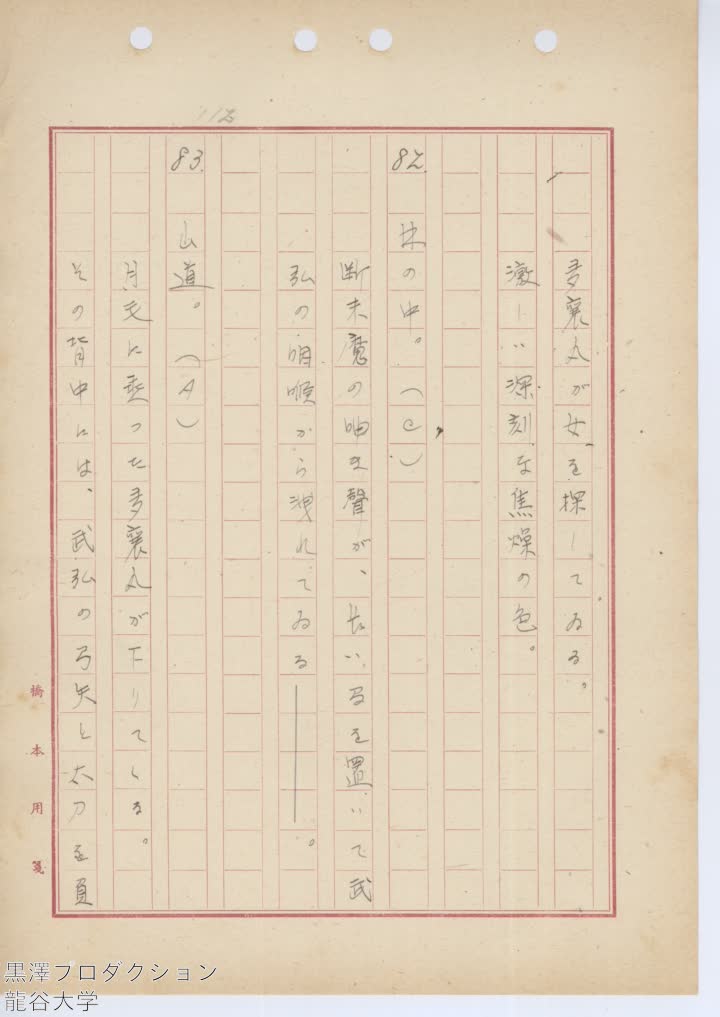 112
多襄丸が女を探してゐる。
激しい深刻な焦燥の色。
82.
林の中。(C)
断末魔の呻き聲が、長い間を置いて武
弘の咽喉から洩れてゐる――――。
83.
山道。(A)
月毛に乗った多襄丸が下りてくる。
その背中には、武弘の弓矢と太刀を負
橋本用箋
黒澤プロダクション
龍谷大学